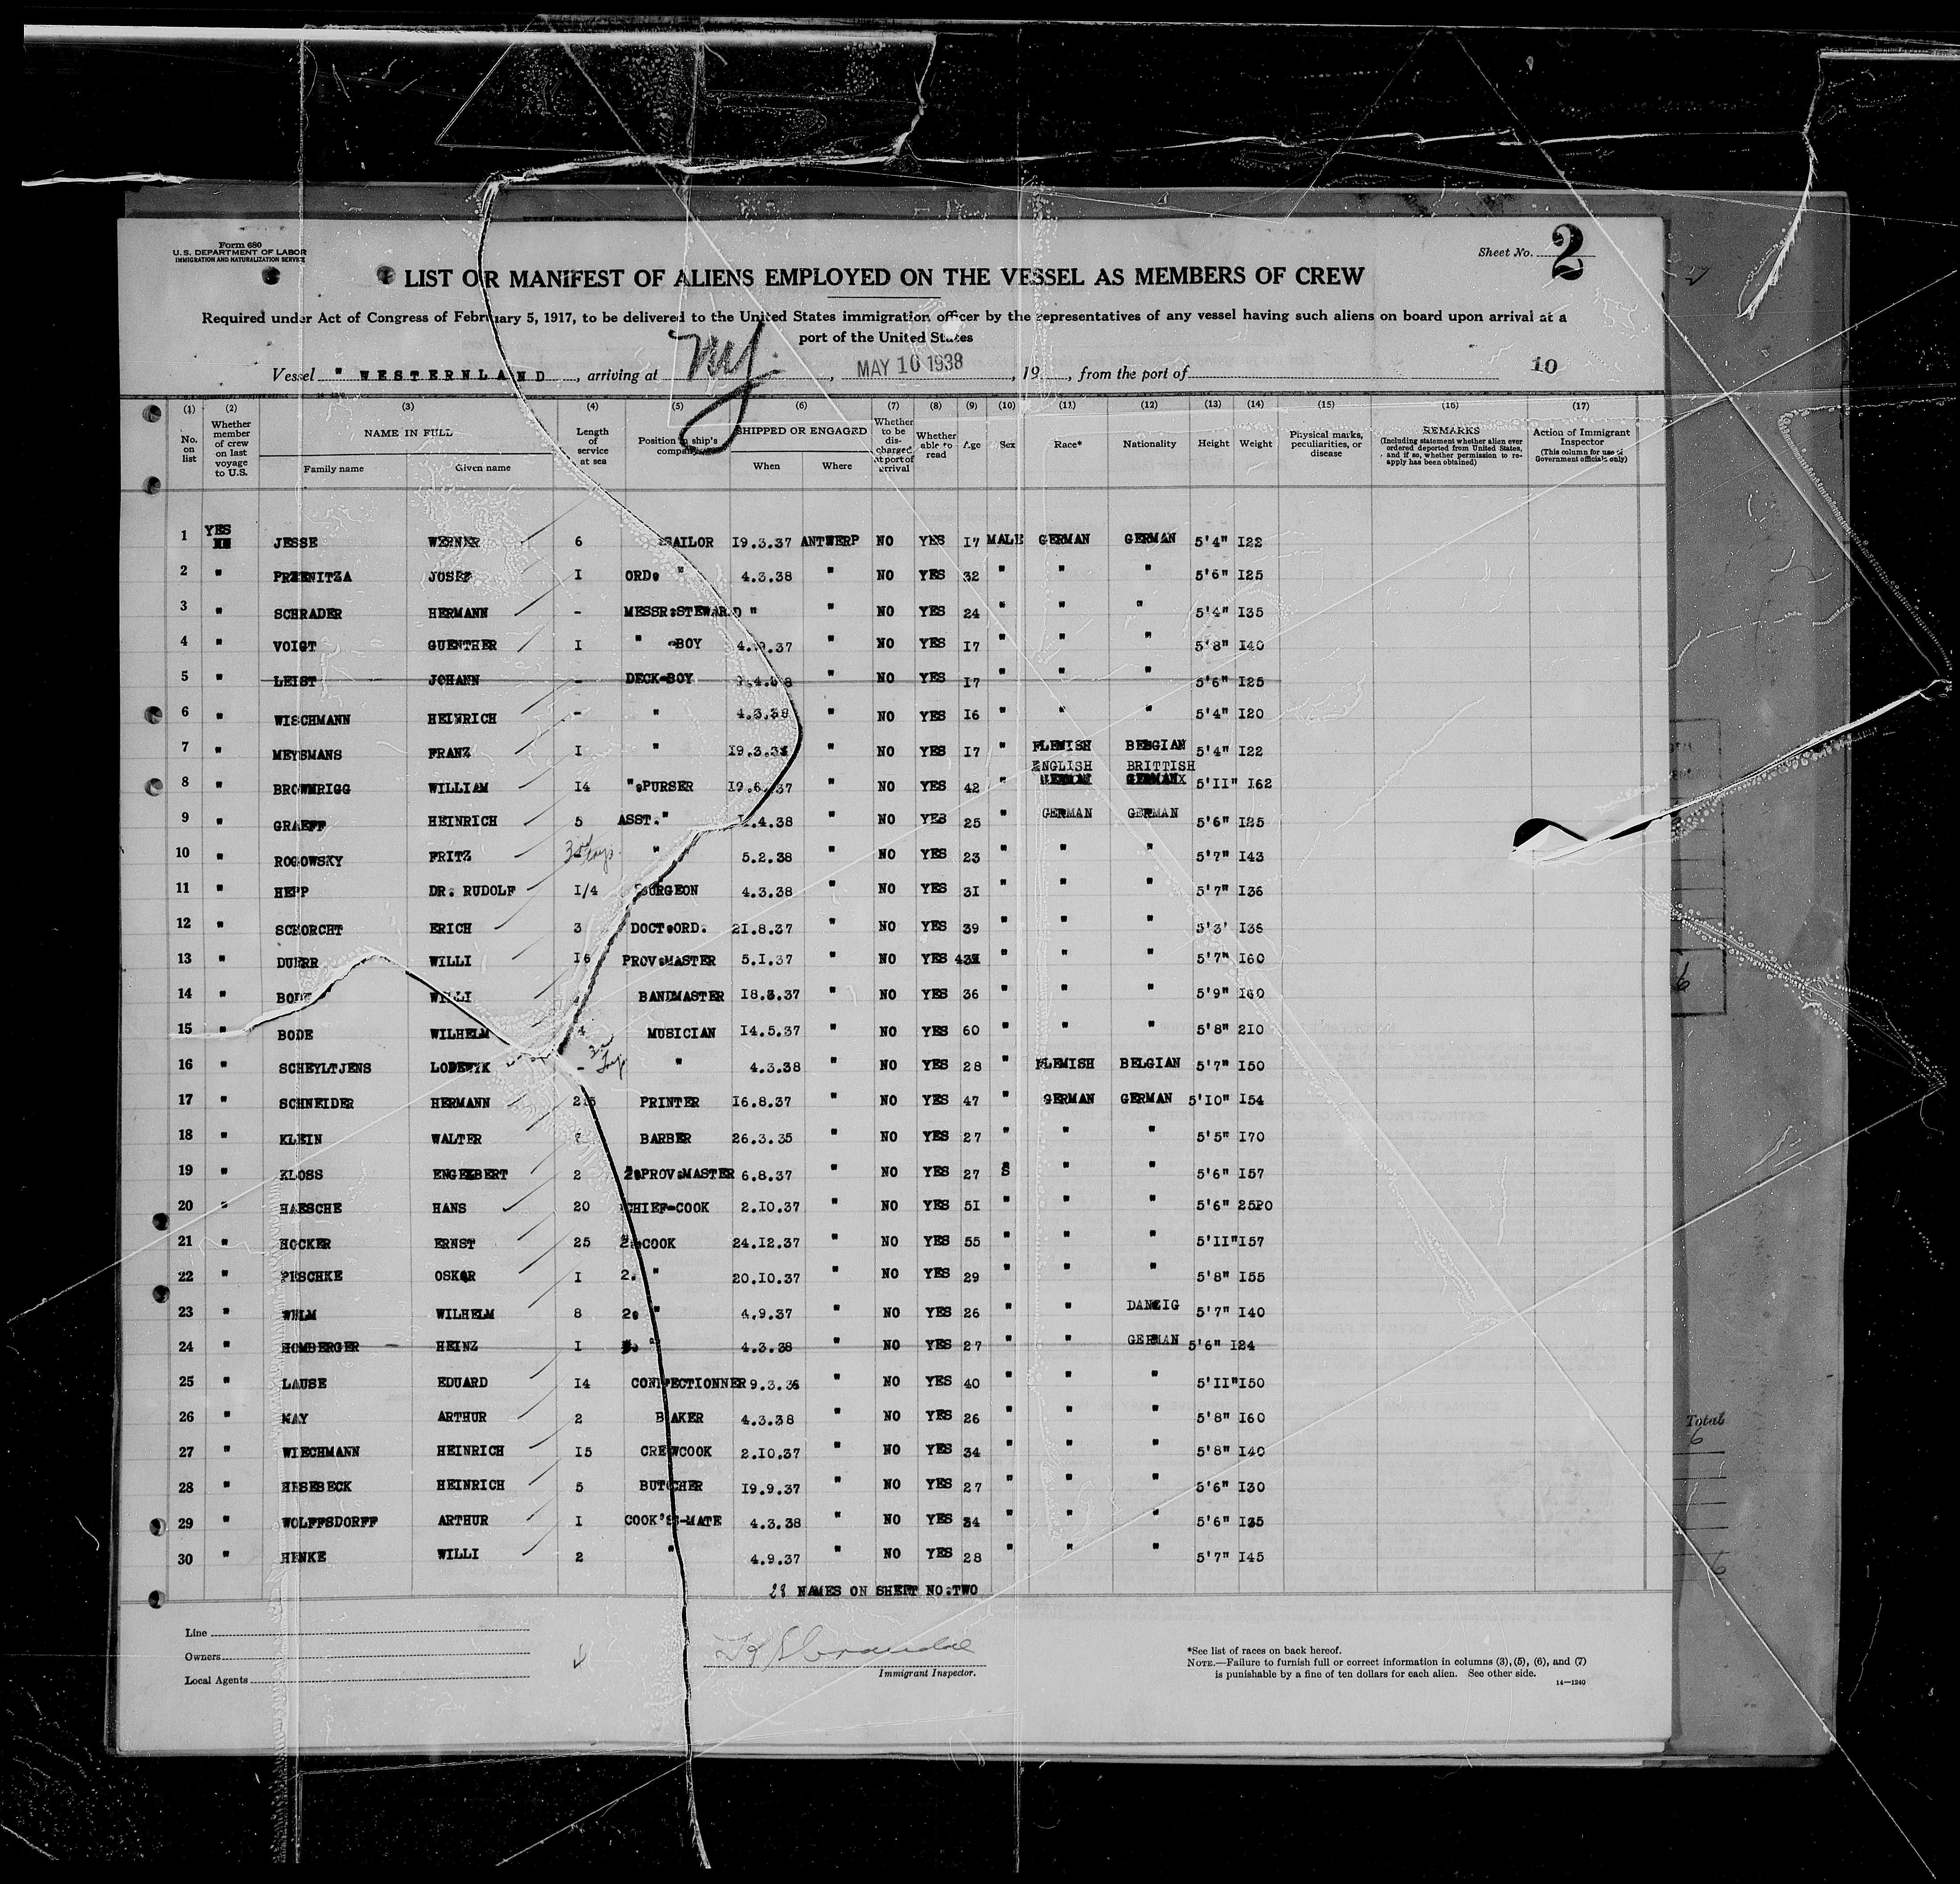 Form 680
U.S. DEPARTMENT OF LABOR
IMMIGRATION AND NATURALIZATION SERVICE
Sheet No. 2
LIST OR MANIFEST OF ALIENS EMPLOYED ON THE VESSEL AS MEMBERS OF CREW
Required under Act of Congress of February 5, 1917, to be delivered to the United States immigration officer by the representatives of any vessel having such aliens on board upon arrival at a
port of the United States
Vessel " WESTERNLAND , arriving at NY. , MAY 10 1938 , 19 , from the port of 10
(1) (2) (3) (4) (5) (6) (7) (8) (9) (10) (11) (12) (13) (14) (15) (16) (17)
No. on list Whether member of crew on last voyage to U.S. NAME IN FULL Family name Given name Length of service at sea Position in ship's company SHIPPED OR ENGAGED When Where Whether to be discharged at port of arrival Whether able to read Age Sex Race* Nationality Height Weight Physical marks, peculiarities, or disease REMARKS (Including statement whether alien ever ordered deported from United States, and if so, whether permission to reapply has been obtained) Action of Immigrant Inspector (This column for use of Government officials only)
1 YES JESSE WERNER 6 SAILOR 19.3.37 ANTWERP NO YES 17 MALE GERMAN GERMAN 5'4" I22
2 " PRZENITZA JOSEF I ORD. " 4.3.38 " NO YES 32 " " " 5'6" I25
3 " SCHRADER HERMANN - MESSR:STEWARD " " NO YES 24 " " " 5'4" I35
4 " VOIGT GUENTHER I " BOY 4.9.37 " NO YES I7 " " " 5'8" I40
5 " LEIST JOHANN - DECK-BOY " NO YES I7 " " " 5'6" I25
6 " WISCHMANN HEINRICH - " 4.3.38 " NO YES I6 " " " 5'4" I20
7 " MEYSMANS FRANZ I " 19.3.38 " NO YES I7 " FLEMISH BELGIAN 5'4" I22
8 " BROWNRIGG WILLIAM I4 " PURSER 19.6.37 " NO YES 42 " ENGLISH BRITTISH 5'II" I62
9 " GRAEFF HEINRICH 5 ASST. " .4.38 " NO YES 25 " GERMAN GERMAN 5'6" I25
10 " ROGOWSKY FRITZ " 5.2.38 " NO YES 23 " " " 5'7" I43
11 " HEPP DR. RUDOLF I/4 SURGEON 4.3.38 " NO YES 3I " " " 5'7" I36
12 " SCHORCHT ERICH 3 DOCT.ORD. 2I.8.37 " NO YES 39 " " " 5'3' I36
13 " DUERR WILLI I6 PROV.MASTER 5.I.37 " NO YES 43 " " " 5'7" I60
14 " BODE WILLI BANDMASTER I8.8.37 " NO YES 36 " " " 5'9" I60
15 " BODE WILHELM 4 MUSICIAN I4.5.37 " NO YES 60 " " " 5'8" 2I0
16 " SCHEYLTJENS LODEWYK - " 4.3.38 " NO YES 28 " FLEMISH BELGIAN 5'7" I50
17 " SCHNEIDER HERMANN PRINTER I6.8.37 " NO YES 47 " GERMAN GERMAN 5'IO" I54
18 " KLEIN WALTER BARBER 26.3.35 " NO YES 27 " " " 5'5" I70
19 " KLOSS ENGELBERT 2 2.PROV.MASTER 6.8.37 " NO YES 27 S " " 5'6" I57
20 " HAESCHE HANS 20 CHIEF-COOK 2.IO.37 " NO YES 5I " " " 5'6"
21 " HOCKER ERNST 25 2.COOK 24.I2.37 " NO YES 55 " " " 5'II" I57
22 " PESCHKE OSKAR I 2. " 20.IO.37 " NO YES 29 " " " 5'8" I55
23 " WELM WILHELM 8 2. " 4.9.37 " NO YES 26 " " DANZIG 5'7" I40
24 " HOMBERGER HEINZ I " 4.3.38 " NO YES 27 " " GERMAN 5'6" I24
25 " LAUSE EDUARD I4 CONFECTIONNER 9.3.36 " NO YES 40 " " " 5'II" I50
26 " MAY ARTHUR 2 BAKER 4.3.38 " NO YES 26 " " " 5'8" I60
27 " WIECHMANN HEINRICH I5 CREWCOOK 2.IO.37 " NO YES 34 " " " 5'8" I40
28 " HESEBECK HEINRICH 5 BUTCHER I9.9.37 " NO YES 27 " " " 5'6" I30
29 " WOLFFSDORFF ARTHUR I COOK'S-MATE 4.3.38 " NO YES 34 " " " 5'6" I35
30 " HENKE WILLI 2 " 4.9.37 " NO YES 28 " " " 5'7" I45
28 NAMES ON SHEET NO.TWO
Line
Owners
Local Agents
Immigrant Inspector.
*See list of races on back hereof.
NOTE.—Failure to furnish full or correct information in columns (3), (5), (6), and (7)
is punishable by a fine of ten dollars for each alien. See other side.
14—1240
Total
6